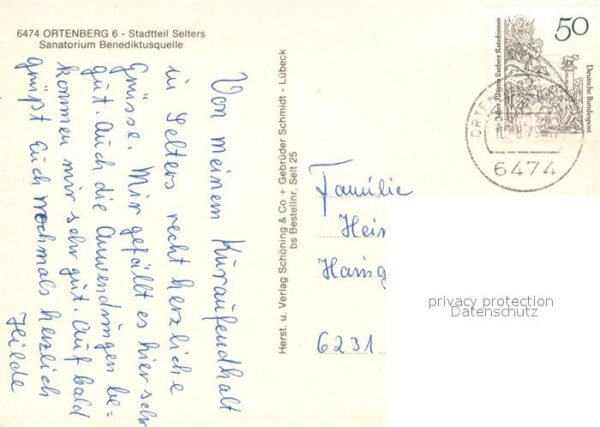 6474 ORTENBERG 6 - Stadtteil Selters
Sanatorium Benediktusquelle
Von meinem Kuraufendhalt
in Selters recht herzliche
Grüsse. Mir gefällt es hier sehr
gut. Auch die Anwendungen be-
kommen mir sehr gut. Auf bald
grüßt Euch nochmals herzlich
Hilde
Herst. u. Verlag Schöning & Co + Gebrüder Schmidt - Lübeck
bs Bestellnr. Selt 25
50
Deutsche Bundespost
Jahre Martin Luthers Katechismus
6474
Familie
Hein
6231
privacy protection
Datenschutz